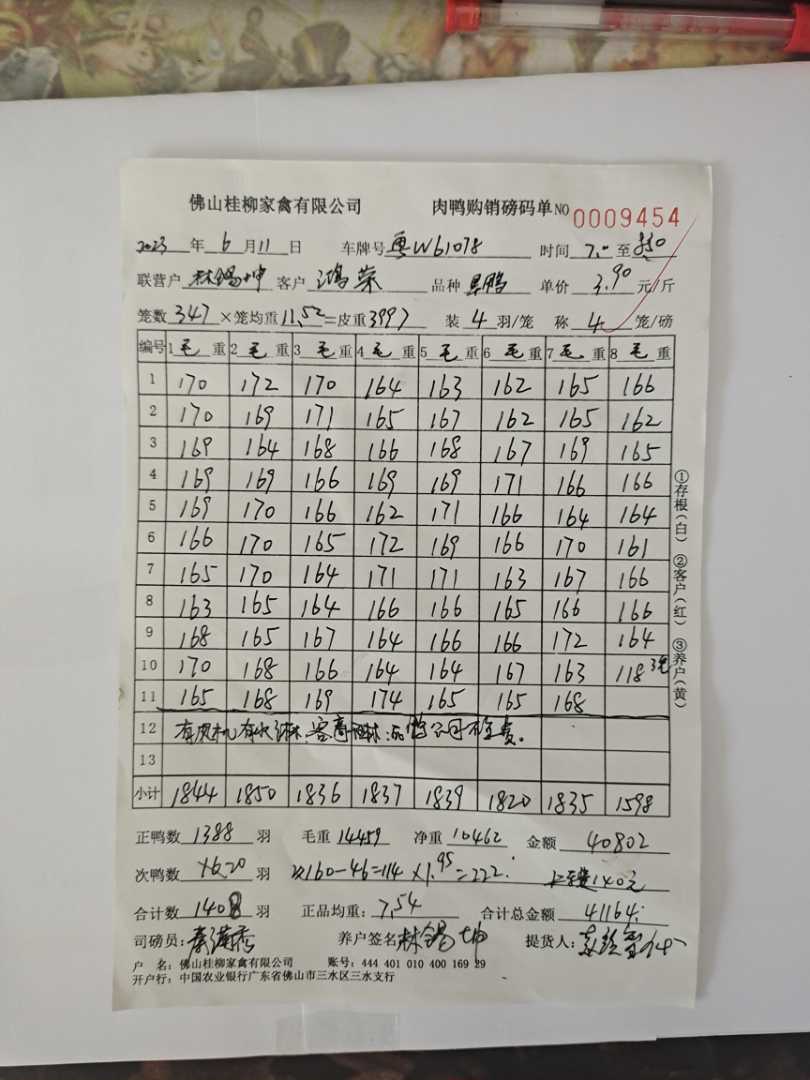 佛山桂柳家禽有限公司 肉鸭购销磅码单NO 0009454
2023 年 6 月 11 日 车牌号 粤W61078 时间 7.0 至 850
联营户 林锡坤 客户 鸿荣 品种 单价 3.90 元/斤
笼数 347 ×笼均重 11.52 =皮重 3997 装 4 羽/笼 称 4 笼/磅
编号 1 毛 重 2 毛 重 3 毛 重 4 毛 重 5 毛 重 6 毛 重 7 毛 重 8 毛 重
1 170 172 170 164 163 162 165 166
2 170 169 171 165 167 162 165 162
3 169 164 168 166 168 167 169 165
4 169 169 166 169 169 171 166 166
5 169 170 166 162 171 166 164 164
6 166 170 165 172 169 166 170 161
7 165 170 164 171 171 163 167 166
8 163 165 164 166 166 165 166 166
9 168 165 167 164 166 166 172 164
10 170 168 166 164 164 167 163 118
11 165 168 169 174 165 165 168
12 有风机有水淋
13
小计 1844 1850 1836 1837 1839 1820 1835 1598
正鸭数 1388 羽 毛重 14459 净重 10462 金额 40802
次鸭数 20 羽 160-46=114×1.95=222 140元
合计数 1408 羽 正品均重: 7.54 合计总金额 41164
司磅员: 养户签名 林锡坤 提货人:
户 名: 佛山桂柳家禽有限公司 账号: 444 401 010 400 169 29
开户行: 中国农业银行广东省佛山市三水区三水支行
①存根(白) ②客户(红) ③养户(黄)